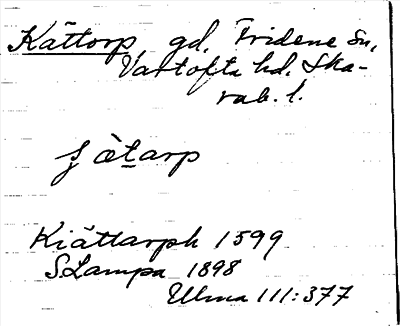 Kättorp gd, Fridene sn,
Vartofta hd. Ska-
rab. l.
ʃ àtarp
Kiättarph 1599
SLampa 1898
Ulma 111:377